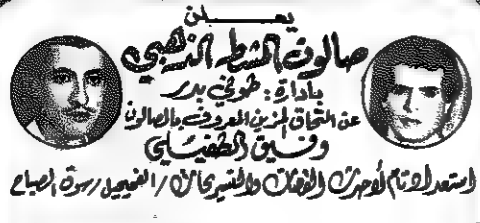 يعلن
صالون المشط الذهبي
بإدارة : طوني بدر
عن التحاق المزين المعروف بالصالون
وفيق الطفيلي
استعداد تام لأحدث القصات والتسريحات / الفحيحيل / سوق الصباح